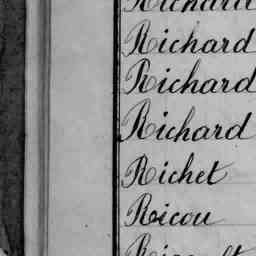 Richard
Richard
Richard
Richard
Richet
Ricou